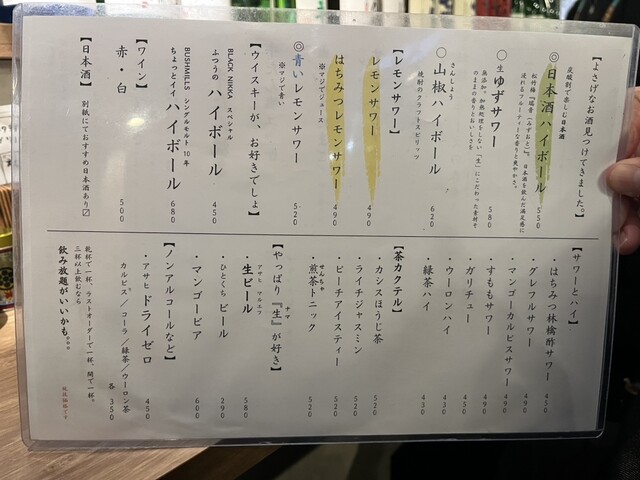 【よさげなお酒見つけてきました。】
炭酸割で楽しむ日本酒
◎日本酒ハイボール 550
松竹梅「瑞音（みずおと）」。日本酒を飲んだ満足感に
浸れるフルーティーな香りと爽やかさ。
○生ゆずサワー 580
無添加、加熱処理をしない「生」にこだわった素材そ
のままの香りとおいしさを
さんしょう
○山椒ハイボール 620
焼酎のクラフトスピリッツ
【レモンサワー】
レモンサワー 490
はちみつレモンサワー 490
※マジでジュース
◎青いレモンサワー 520
※マジで青い
【ウイスキーが、お好きでしょ】
BLACK NIKKA スペシャル
ふつうのハイボール 450
BUSHMILLS シングルモルト 10年
ちょっとイイハイボール 680
【ワイン】
赤・白 500
【日本酒】
別紙にておすすめ日本酒あり〼
【サワーとハイ】
・はちみつ林檎酢サワー 450
・グレフルサワー 490
・マンゴーカルピスサワー 490
・すももサワー 490
・ガリチュー 450
・ウーロンハイ 430
・緑茶ハイ 430
【茶カクテル】
・カシスほうじ茶 520
・ライチジャスミン 520
・ピーチアイスティー 520
せんちゃ
・煎茶トニック 520
ナマ
【やっぱり『生』が好き】
アサヒ マルエフ
・生ビール 580
・ひとくちビール 290
・マンゴービア 600
【ノンアルコールなど】
・アサヒドライゼロ 450
カルピス／コーラ／緑茶／ウーロン茶
各 350
乾杯で一杯、ラストオーダーで一杯、間で一杯。
三杯以上飲むなら
飲み放題がいいかも。。。
税抜価格です